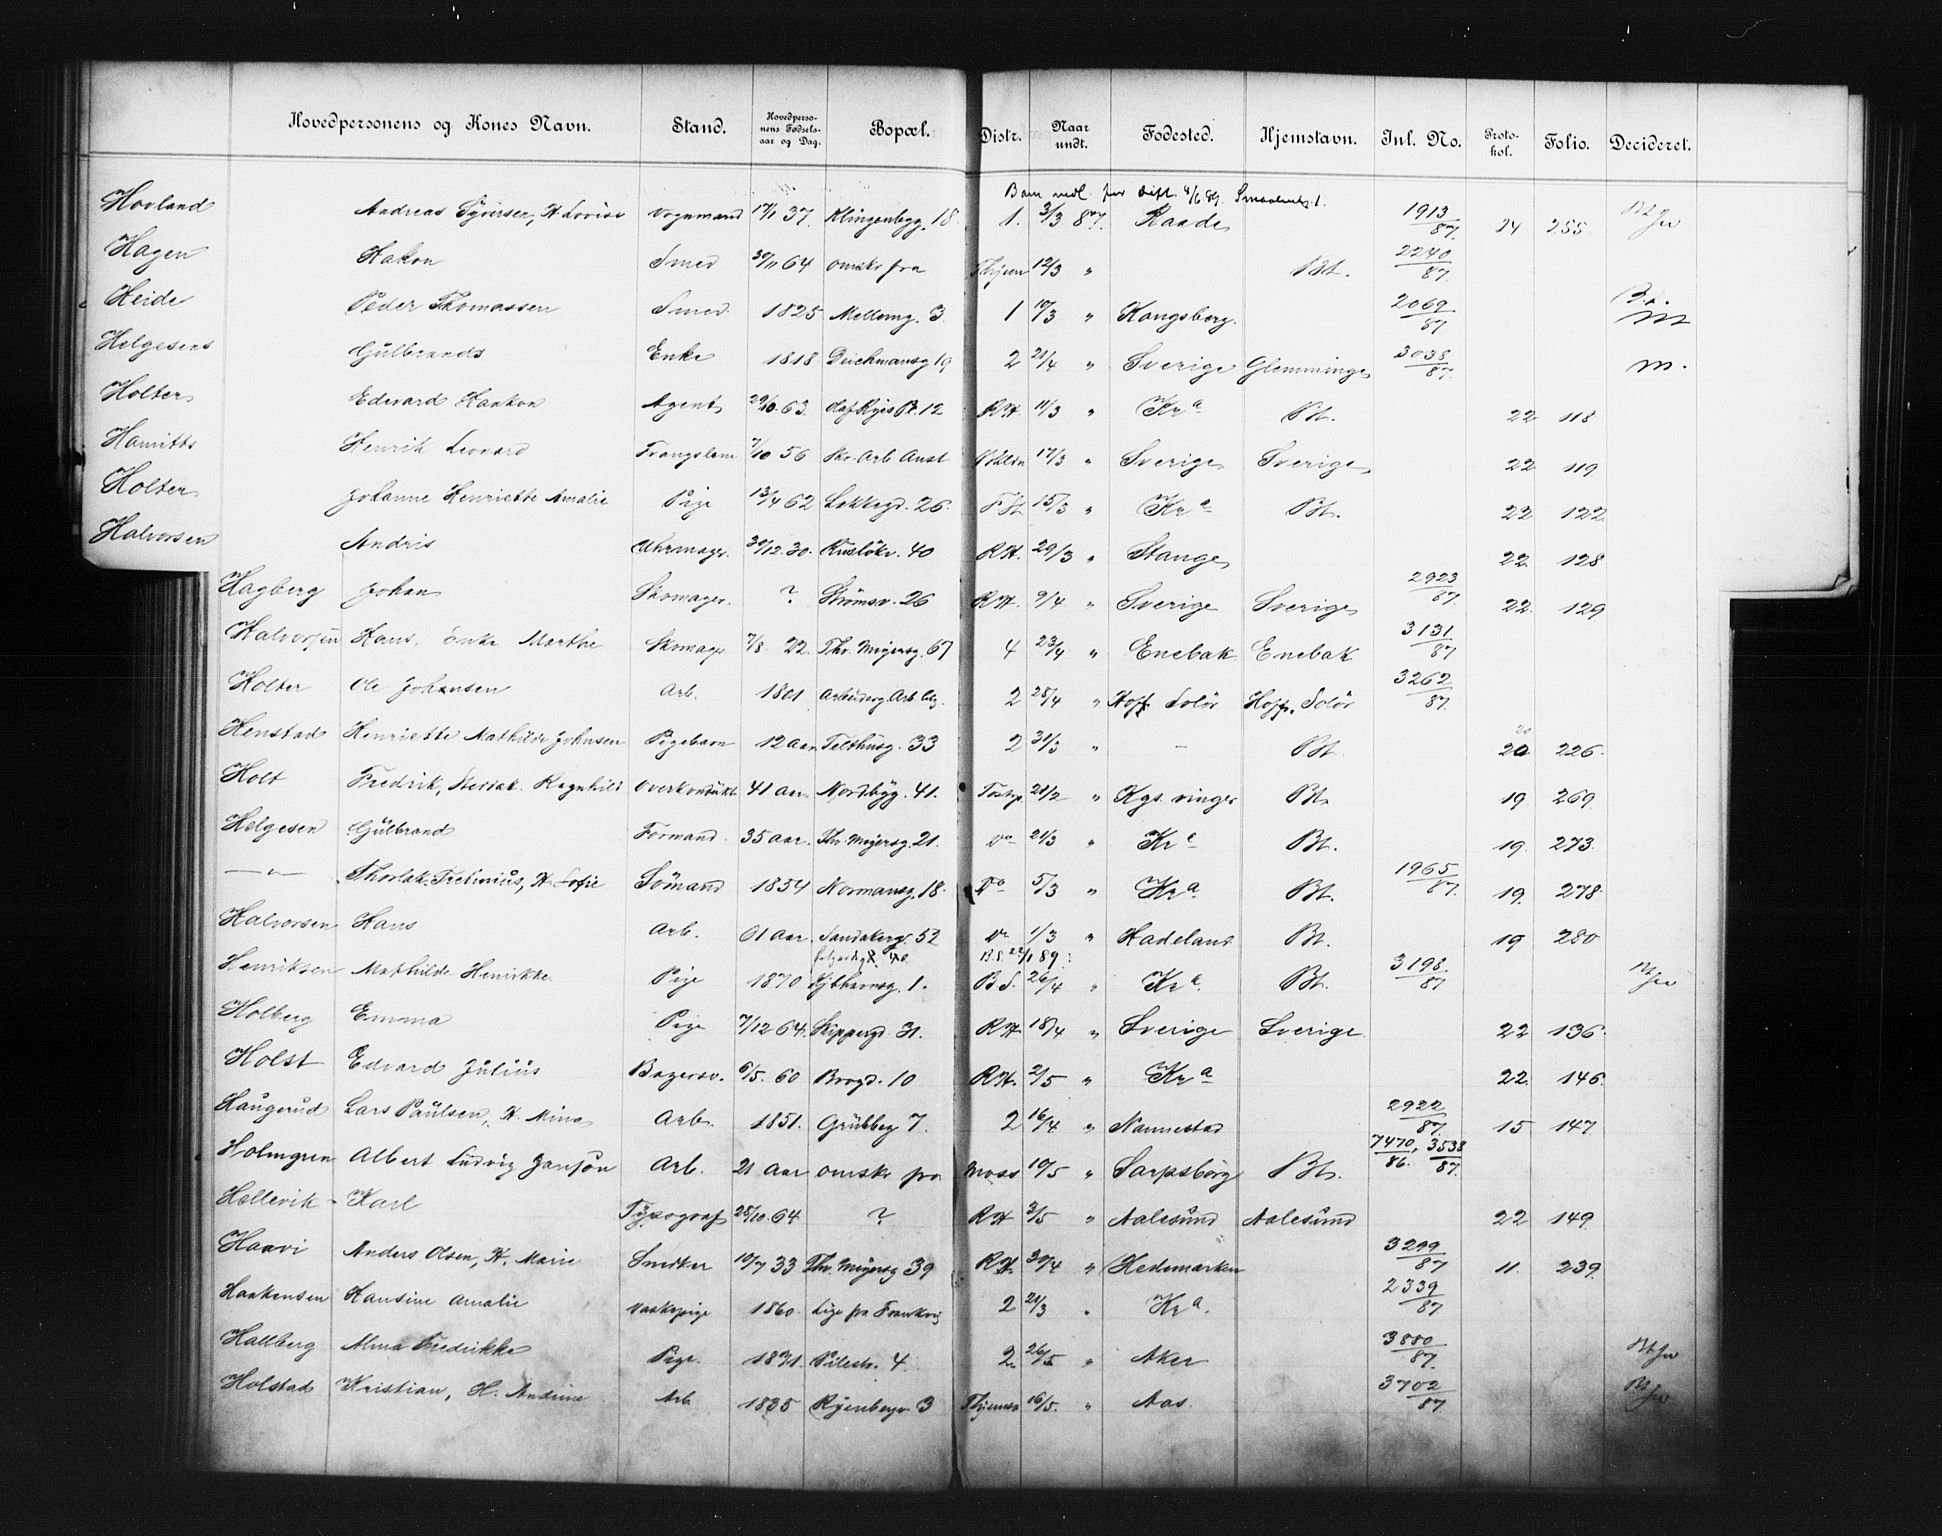 Hovedpersonens og Kones Navn. Stand. Hovedpersonens Fødselsaar og Dag. Bopæl. Distr. Naar undt. Fødested. Hjemstavn. Inl. No. Protokol. Folio. Decideret.
Barn undl. 4/6 89
Hovland Andreas Syversen, H. Lovise Vognmand 17/1 37. Klingenbgg. 18. 1. 3/3 87. Raade 1913/87. 24 255
Hagen Hakon Smed 30/11 64 omskr fra 12/3 " Bt. 2240/87.
Heide Peder Thomassen Smed. 1825 Mellemg. 3. 1 10/3 " Kongsberg. 2069/87. M
Helgesens Gülbrands Enke 1818. Deichmansg 19 2 21/4 " Sverige Glemminge 3038/87. M.
Holter Edevard Haakon Agent 29/10 63. Olaf Ryes Pl. 12 RH. 11/3 " Kra Bt. 22 118
Hamitts Henrik Leonard Tvangslem 7/10 56 Skr. Arb Anst 17/3 " Sverige Sverige 22 119
Holter Johanne Henriette Amalie Pige 13/4 62 Lakkegd. 26. 15/3 " Kra Bt. 22 122
Halvorsen Andris Uhrmager. 30/12 30. 40 RH. 29/3 " Stange 22 128
Hagberg Johan Skomager. ? Strömsv. 26 RH. 9/4 " Sverige Sverige 2923/87. 22 129
Halvorsen Hans, Enke Marthe Skomager 7/8 22. Thv. Meyersg. 67 4 23/4 " Enebak Enebak 3131/87
Holter Ole Johansen Arb. 1801 2 28/4 " Hoff Solör Hoff, Solör 3262/87.
Henstad Henriette Mathilde Johnsen Pigebarn 12 aar Telthusg. 33 2 31/3 " – Bt. 20 226.
Holt Fredrik, Ragnhild Overkondukt 41 aar. Nordbyg. 41. 21/2 " Kgs. vinger Bt. 19 269.
Helgesen Gülbrand Formand. 35 aar. Thv. Meyersg. 21. Do 21/3 " Kra Bt. 19. 273.
— " — Thorlak. H. Sofie Sömand 1854 Normansg. 18. Do 5/3 " Kra. Bt. 1965/87. 19. 278
Halvorsen Hans Arb. 61 aar. Sandakerg. 52 Do 1/3 " Hadeland Bt. 19 280
Henriksen Mathilde Henrikke Pige 1870 Kjbhavnsg. 1. B.S. 26/4 " Kra. Bt. 3198/87
Holberg Emma Pige 7/12 64. Skippergd. 31. RH 18/4 " Sverige Sverige 22 136
Holst Edvard Jülius Bagersv. 6/5. 60 Brogd. 10 RH. 2/5 " Kra 22. 146.
Haugerud Lars Paülsen, H. Mina Arb. 1851. Grübbeg 7. 2 16/4 " Nannestad 2922/87. 15 147
Holmgren Albert Ludvig Jansson Arb. 21 aar omskr fra Moss 10/5 " Sarpsborg Bt. 7470/86. 3538/87.
Hellevik Karl Typograf 25/10. 64 ? RH 3/5 " Aalesünd Aalesünd 22 149
Haavi Anders Olsen, H. Marie Snedker 10/7 33 Thv. Meyersg 39 RH. 30/4 " Hedemarken 3299/87 11. 239.
Haakensen Hansine Amalie Vaskepige 1860. 2 21/3 " Kra. 2339/87
Hallberg Alma Fredrikke Pige. 1871. Pilestr. 4 2 26/5 " Aker 3880/87.
Holstad Kristian, H. Andrine Arb 1835 Ryenbergv. 3 16/5. " Aas. 3702/87.